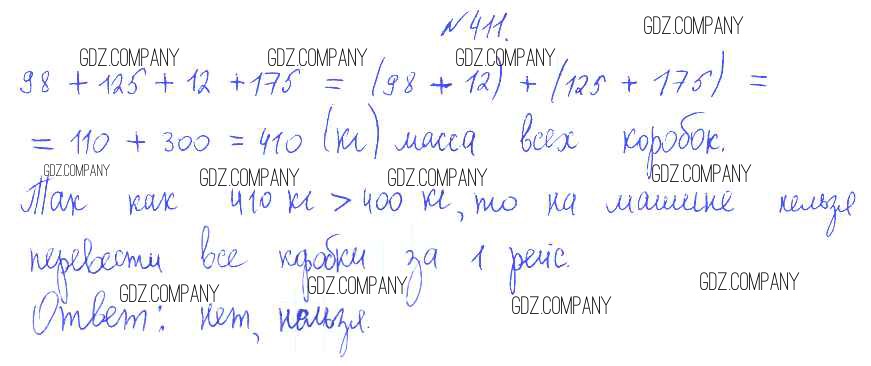 № 411.
98 + 125 + 12 + 175 = (98 + 12) + (125 + 175) =
= 110 + 300 = 410 (кг) масса всех коробок.
Так как 410 кг > 400 кг, то на машине нельзя
перевести все коробки за 1 рейс.
Ответ: нет, нельзя.
GDZ.COMPANY
GDZ.COMPANY GDZ.COMPANY GDZ.COMPANY
GDZ.COMPANY GDZ.COMPANY GDZ.COMPANY GDZ.COMPANY
GDZ.COMPANY GDZ.COMPANY GDZ.COMPANY GDZ.COMPANY